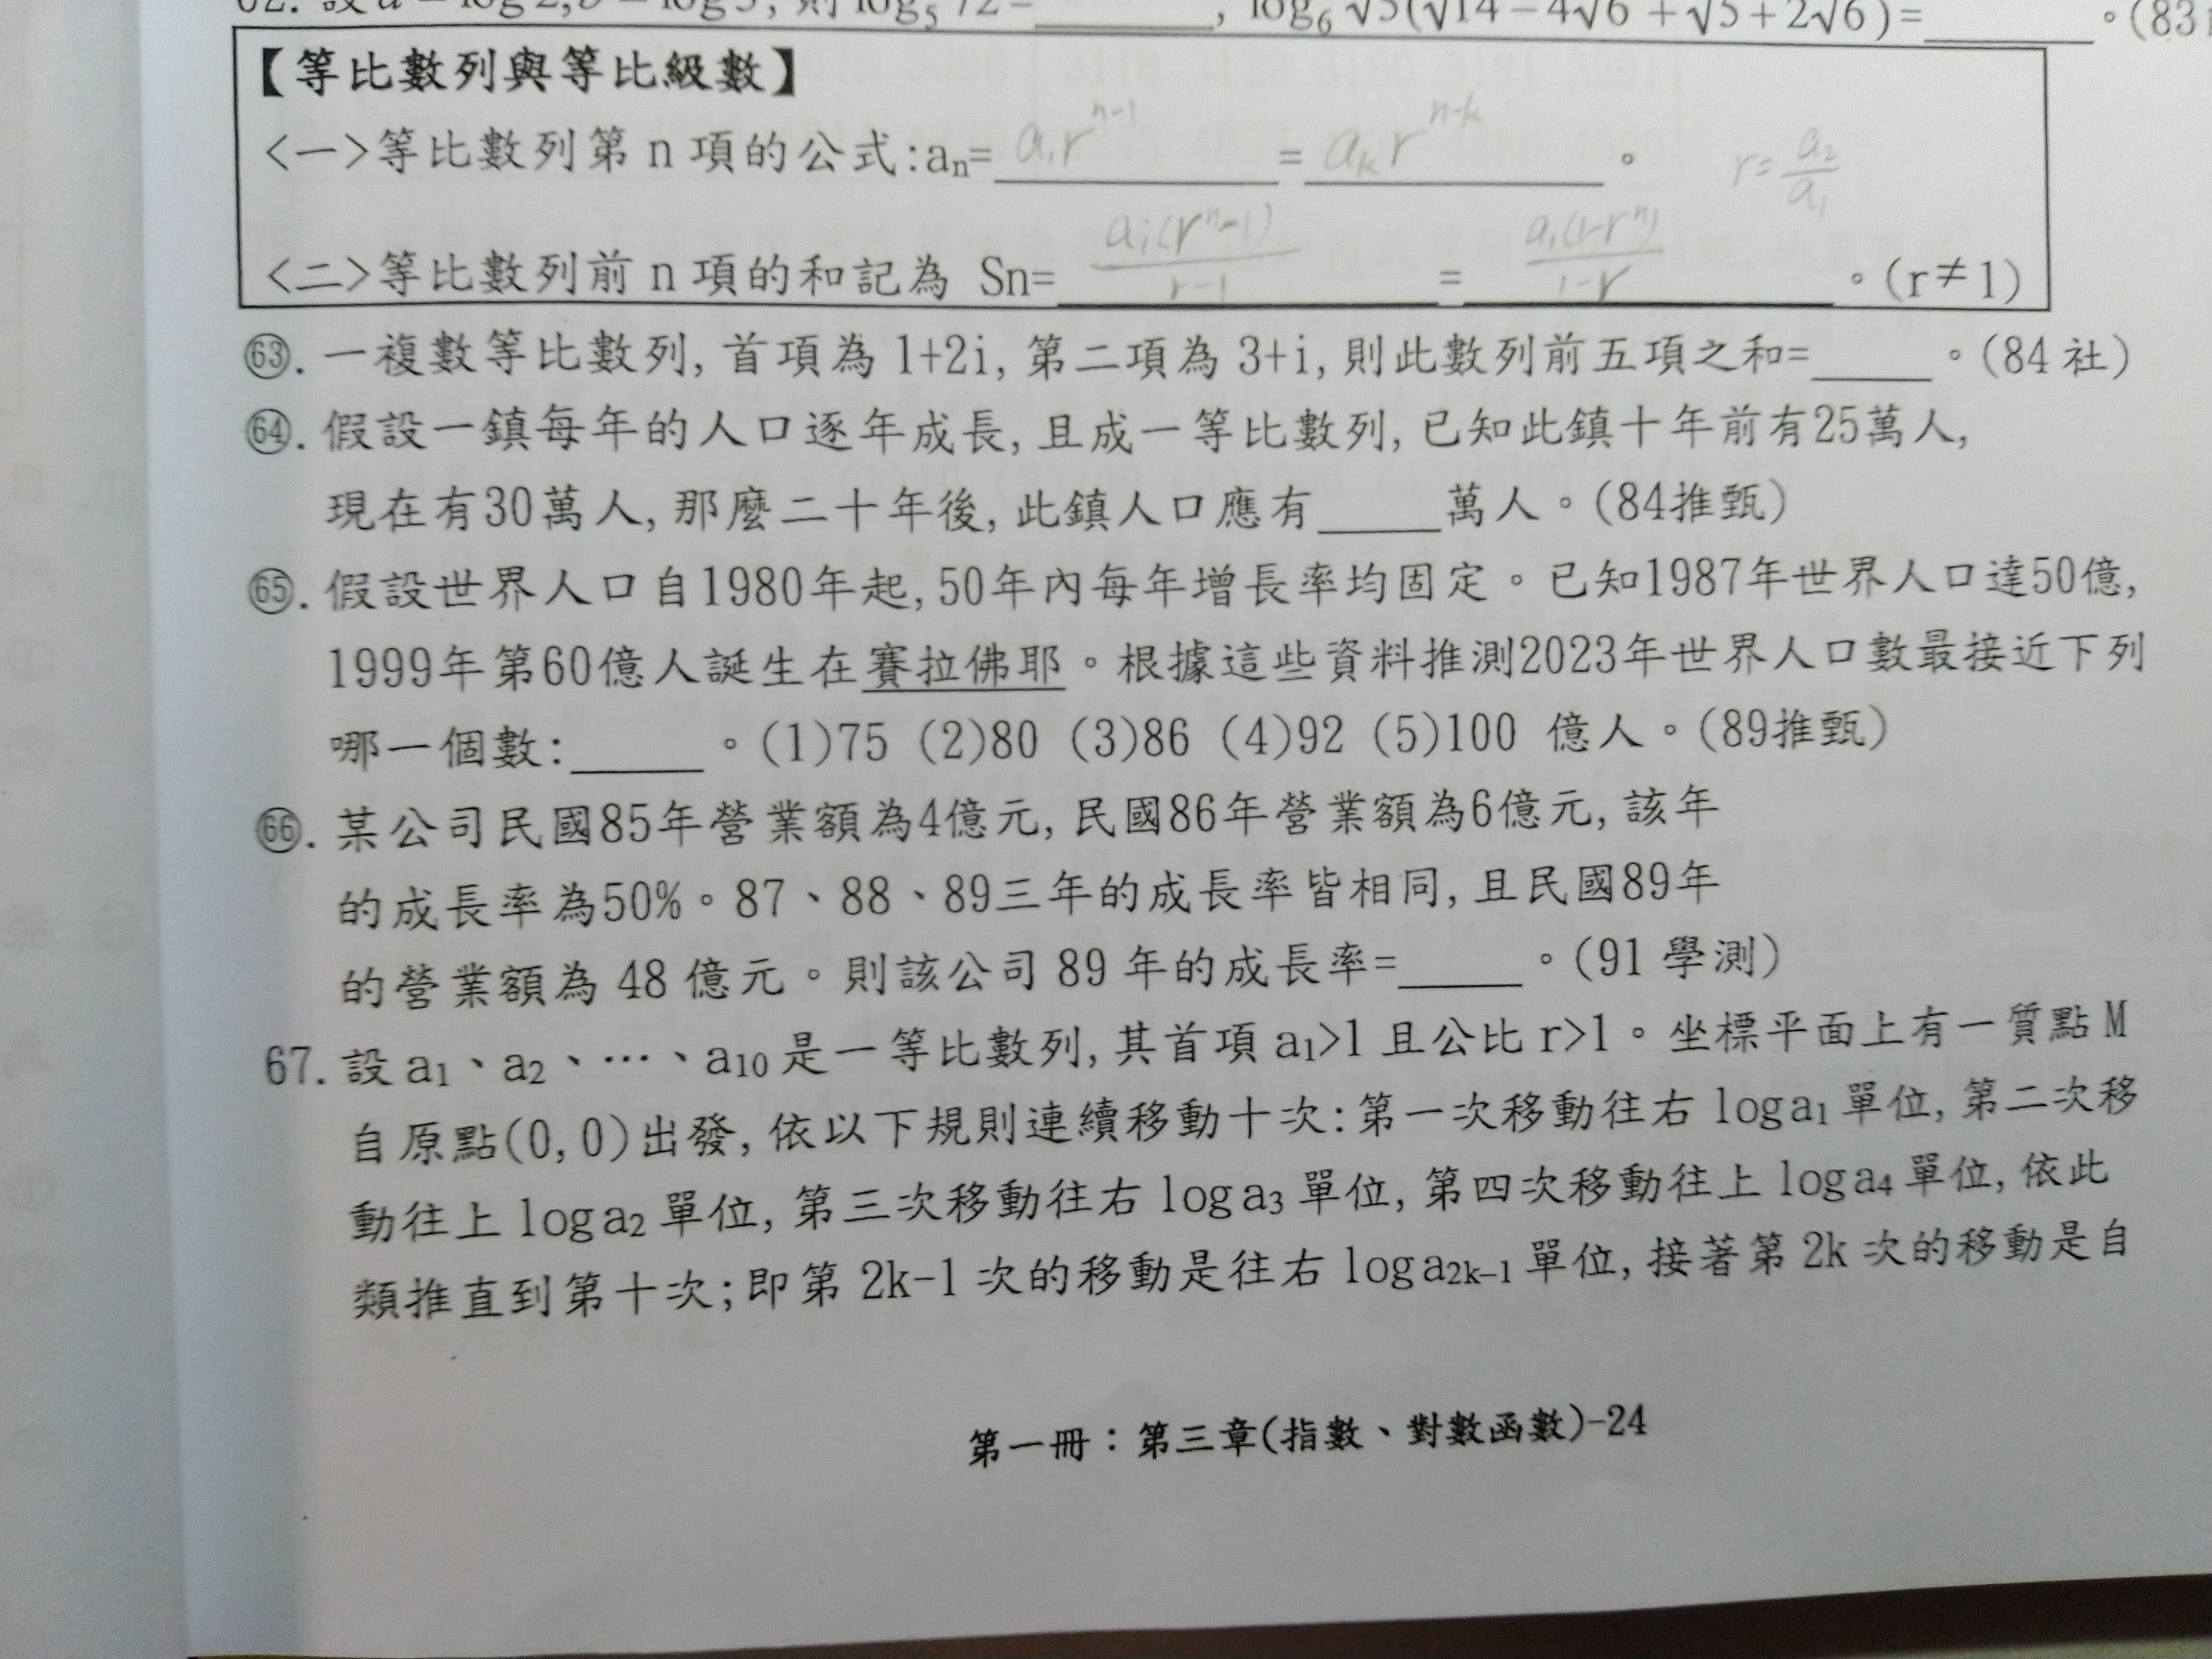 62. 設a=log2,b=log3, 則log₅72=______, log₆√5(√14-4√6+√5+2√6)=______。(83
【等比數列與等比級數】
<一>等比數列第n項的公式:aₙ= a₁rⁿ⁻¹ = aₖrⁿ⁻ᵏ 。 r=a₂/a₁
<二>等比數列前n項的和記為 Sn= a₁(rⁿ-1)/(r-1) = a₁(1-rⁿ)/(1-r) 。(r≠1)
63. 一複數等比數列, 首項為 1+2i, 第二項為 3+i, 則此數列前五項之和=____。(84 社)
64. 假設一鎮每年的人口逐年成長, 且成一等比數列, 已知此鎮十年前有25萬人,
現在有30萬人, 那麼二十年後, 此鎮人口應有____萬人。(84推甄)
65. 假設世界人口自1980年起, 50年內每年增長率均固定。已知1987年世界人口達50億,
1999年第60億人誕生在賽拉佛耶。根據這些資料推測2023年世界人口數最接近下列
哪一個數:____。(1)75 (2)80 (3)86 (4)92 (5)100 億人。(89推甄)
66. 某公司民國85年營業額為4億元, 民國86年營業額為6億元, 該年
的成長率為50%。87、88、89三年的成長率皆相同, 且民國89年
的營業額為 48 億元。則該公司 89 年的成長率=____。(91 學測)
67. 設 a₁、a₂、…、a₁₀ 是一等比數列, 其首項 a₁>1 且公比 r>1。坐標平面上有一質點 M
自原點(0,0)出發, 依以下規則連續移動十次:第一次移動往右 log a₁ 單位, 第二次移
動往上 log a₂ 單位, 第三次移動往右 log a₃ 單位, 第四次移動往上 log a₄ 單位, 依此
類推直到第十次;即第 2k-1 次的移動是往右 log a₂ₖ₋₁ 單位, 接著第 2k 次的移動是自
第一冊：第三章(指數、對數函數)-24